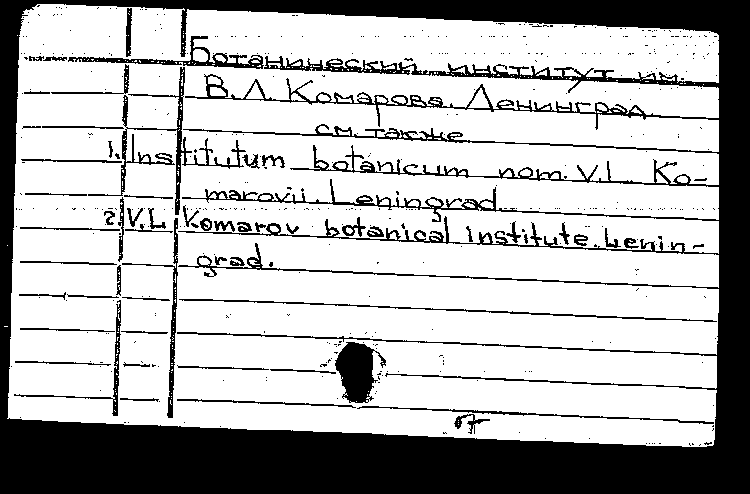 Ботанический институт им.
В.Л. Комарова. Ленинград
см. также
1. Institutum botanicum nom. V.L. Ko-
marovii. Leningrad
2. V.L. Komarov botanical institute. Lenin-
grad.